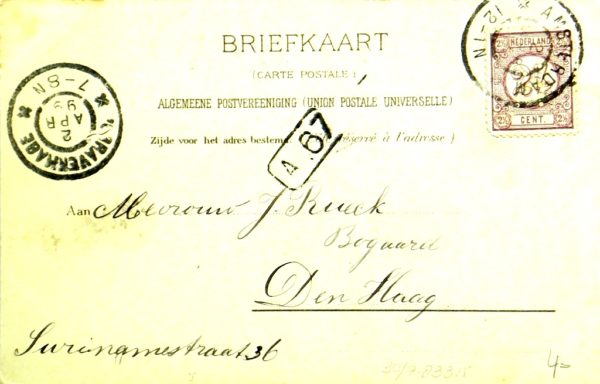 BRIEFKAART
(CARTE POSTALE)
ALGEMEENE POSTVEREENIGING (UNION POSTALE UNIVERSELLE)
Zijde voor het adres bestemd à l'adresse)
Aan Mevrouw J. Rueck
Bogaard
Den Haag
Surinamestraat 36
NEDERLAND
2½ 2½
CENT.
AMSTERDAM
12-1N
'SGRAVENHAGE
2
APR
99
7-8N
A 67
4=